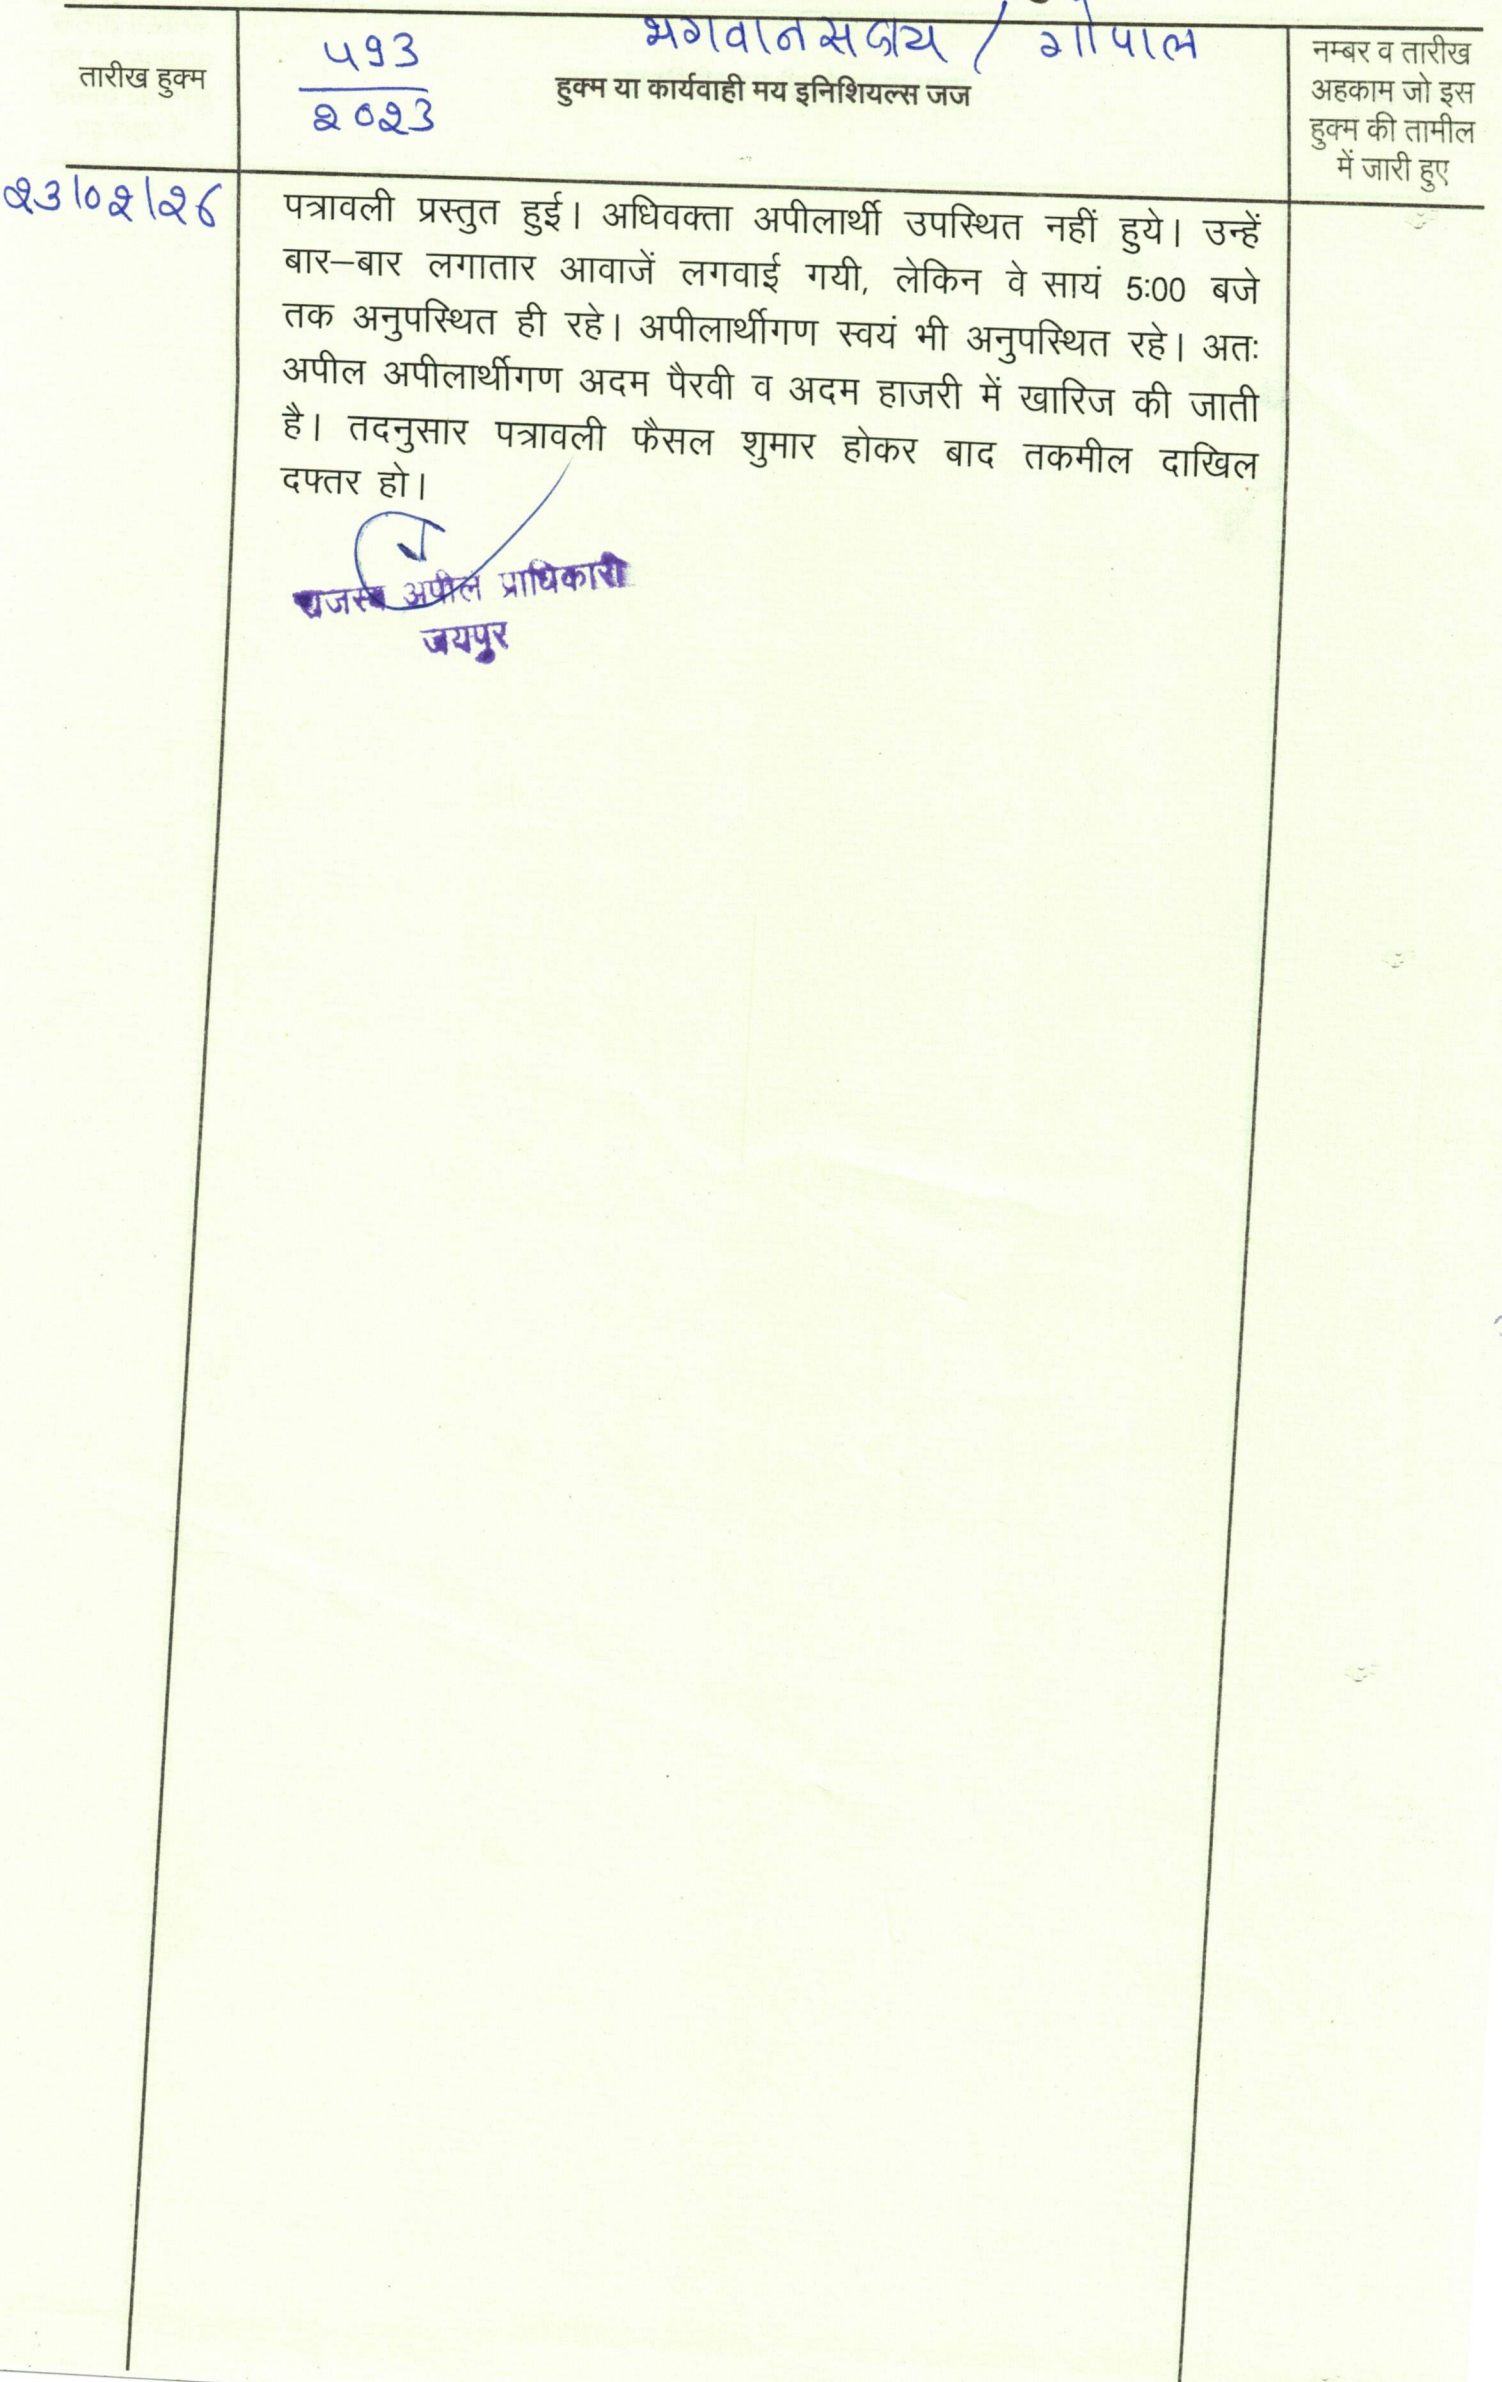 भगवानसहाय / गोपाल
५१३
२०२३
तारीख हुक्म
हुक्म या कार्यवाही मय इनिशियल्स जज
नम्बर व तारीख
अहकाम जो इस
हुक्म की तामील
में जारी हुए
२३/०२/२६
पत्रावली प्रस्तुत हुई। अधिवक्ता अपीलार्थी उपस्थित नहीं हुये। उन्हें
बार–बार लगातार आवाजें लगवाई गयी, लेकिन वे सायं 5:00 बजे
तक अनुपस्थित ही रहे। अपीलार्थीगण स्वयं भी अनुपस्थित रहे। अतः
अपील अपीलार्थीगण अदम पैरवी व अदम हाजरी में खारिज की जाती
है। तदनुसार पत्रावली फैसल शुमार होकर बाद तकमील दाखिल
दफ्तर हो।
राजस्व अपील प्राधिकारी
जयपुर